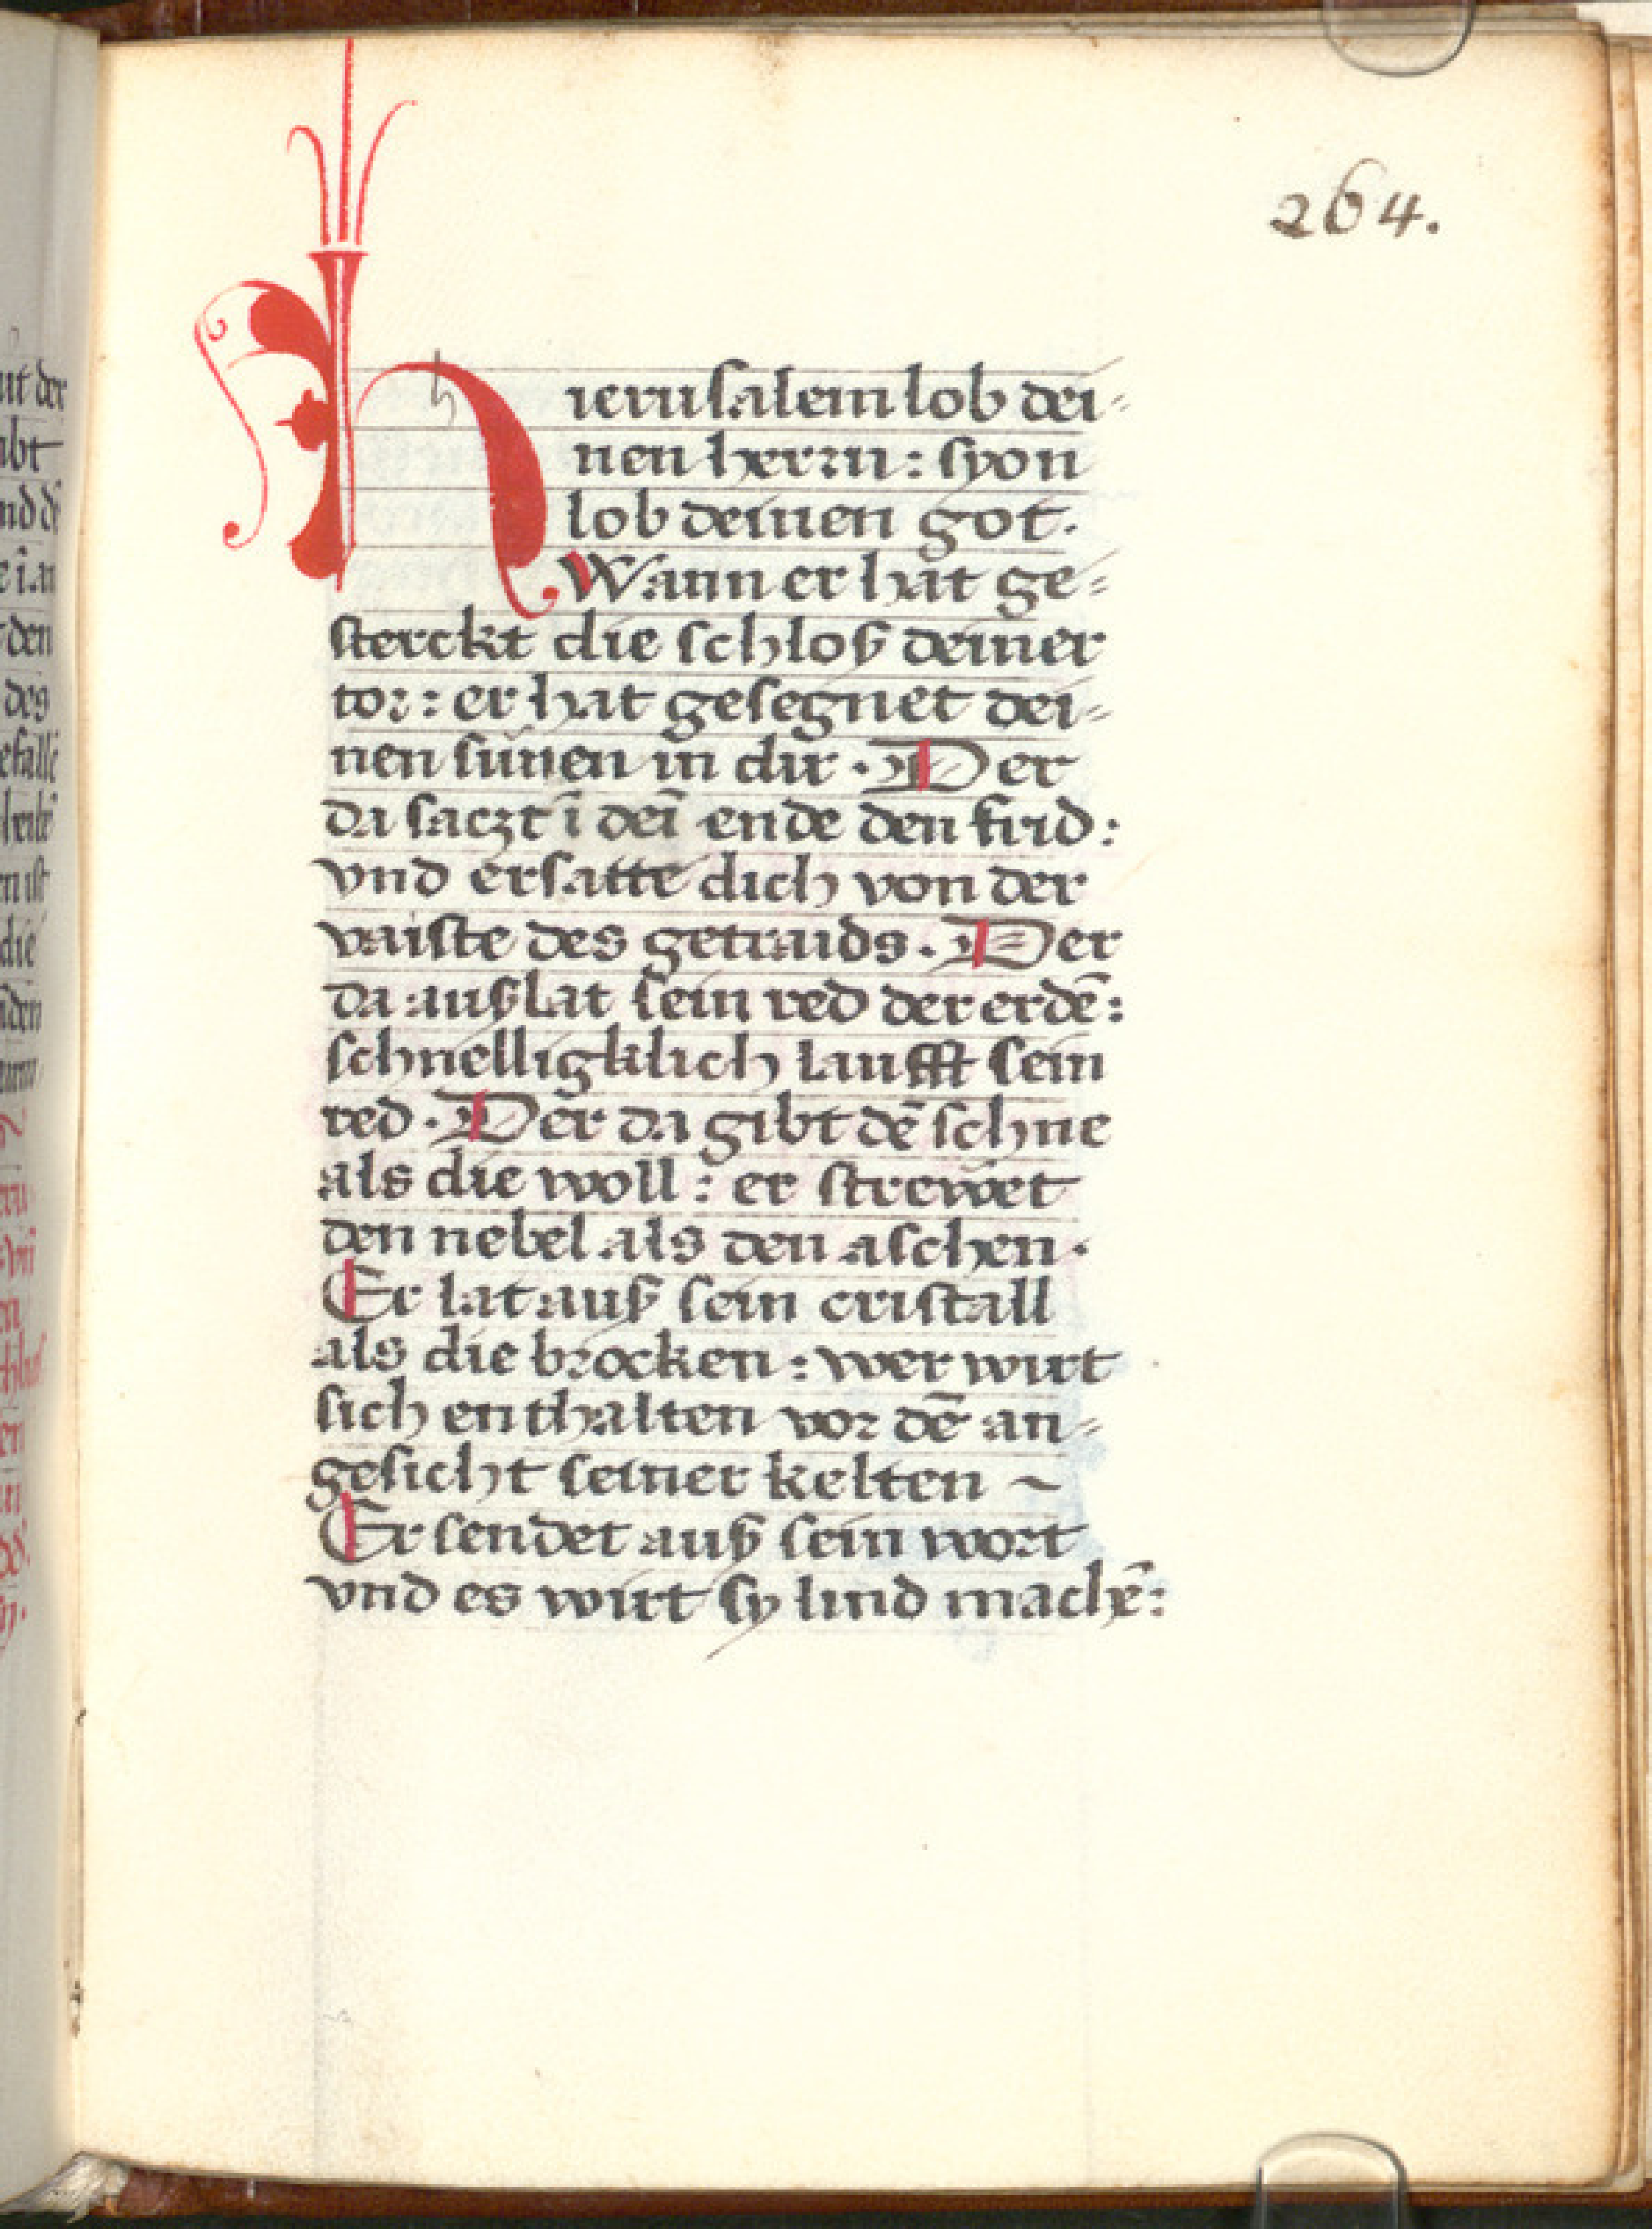 264.
Hierusalem lob dei=
nen herrn : syon
lob deinen got.
Wann er hat ge=
sterckt die schloß deiner
tor : er hat gesegnet dei=
nen sünen in dir . Der
da saczt ī deī ende den frid :
vnd ersatte dich von der
vaiste des getraids . Der
da außlat sein red der erdē :
schnelligklich laufft sein
red . Der da gibt dē schne
als die woll : er strewet
den nebel als den aschen .
Er lat auß sein cristall
als die brocken : wer wirt
sich enthalten vor dē an=
gesicht seiner kelten ~
Er sendet auß sein wort
vnd es wirt sy lind machē :